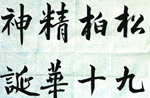 松柏精神
九十華誕